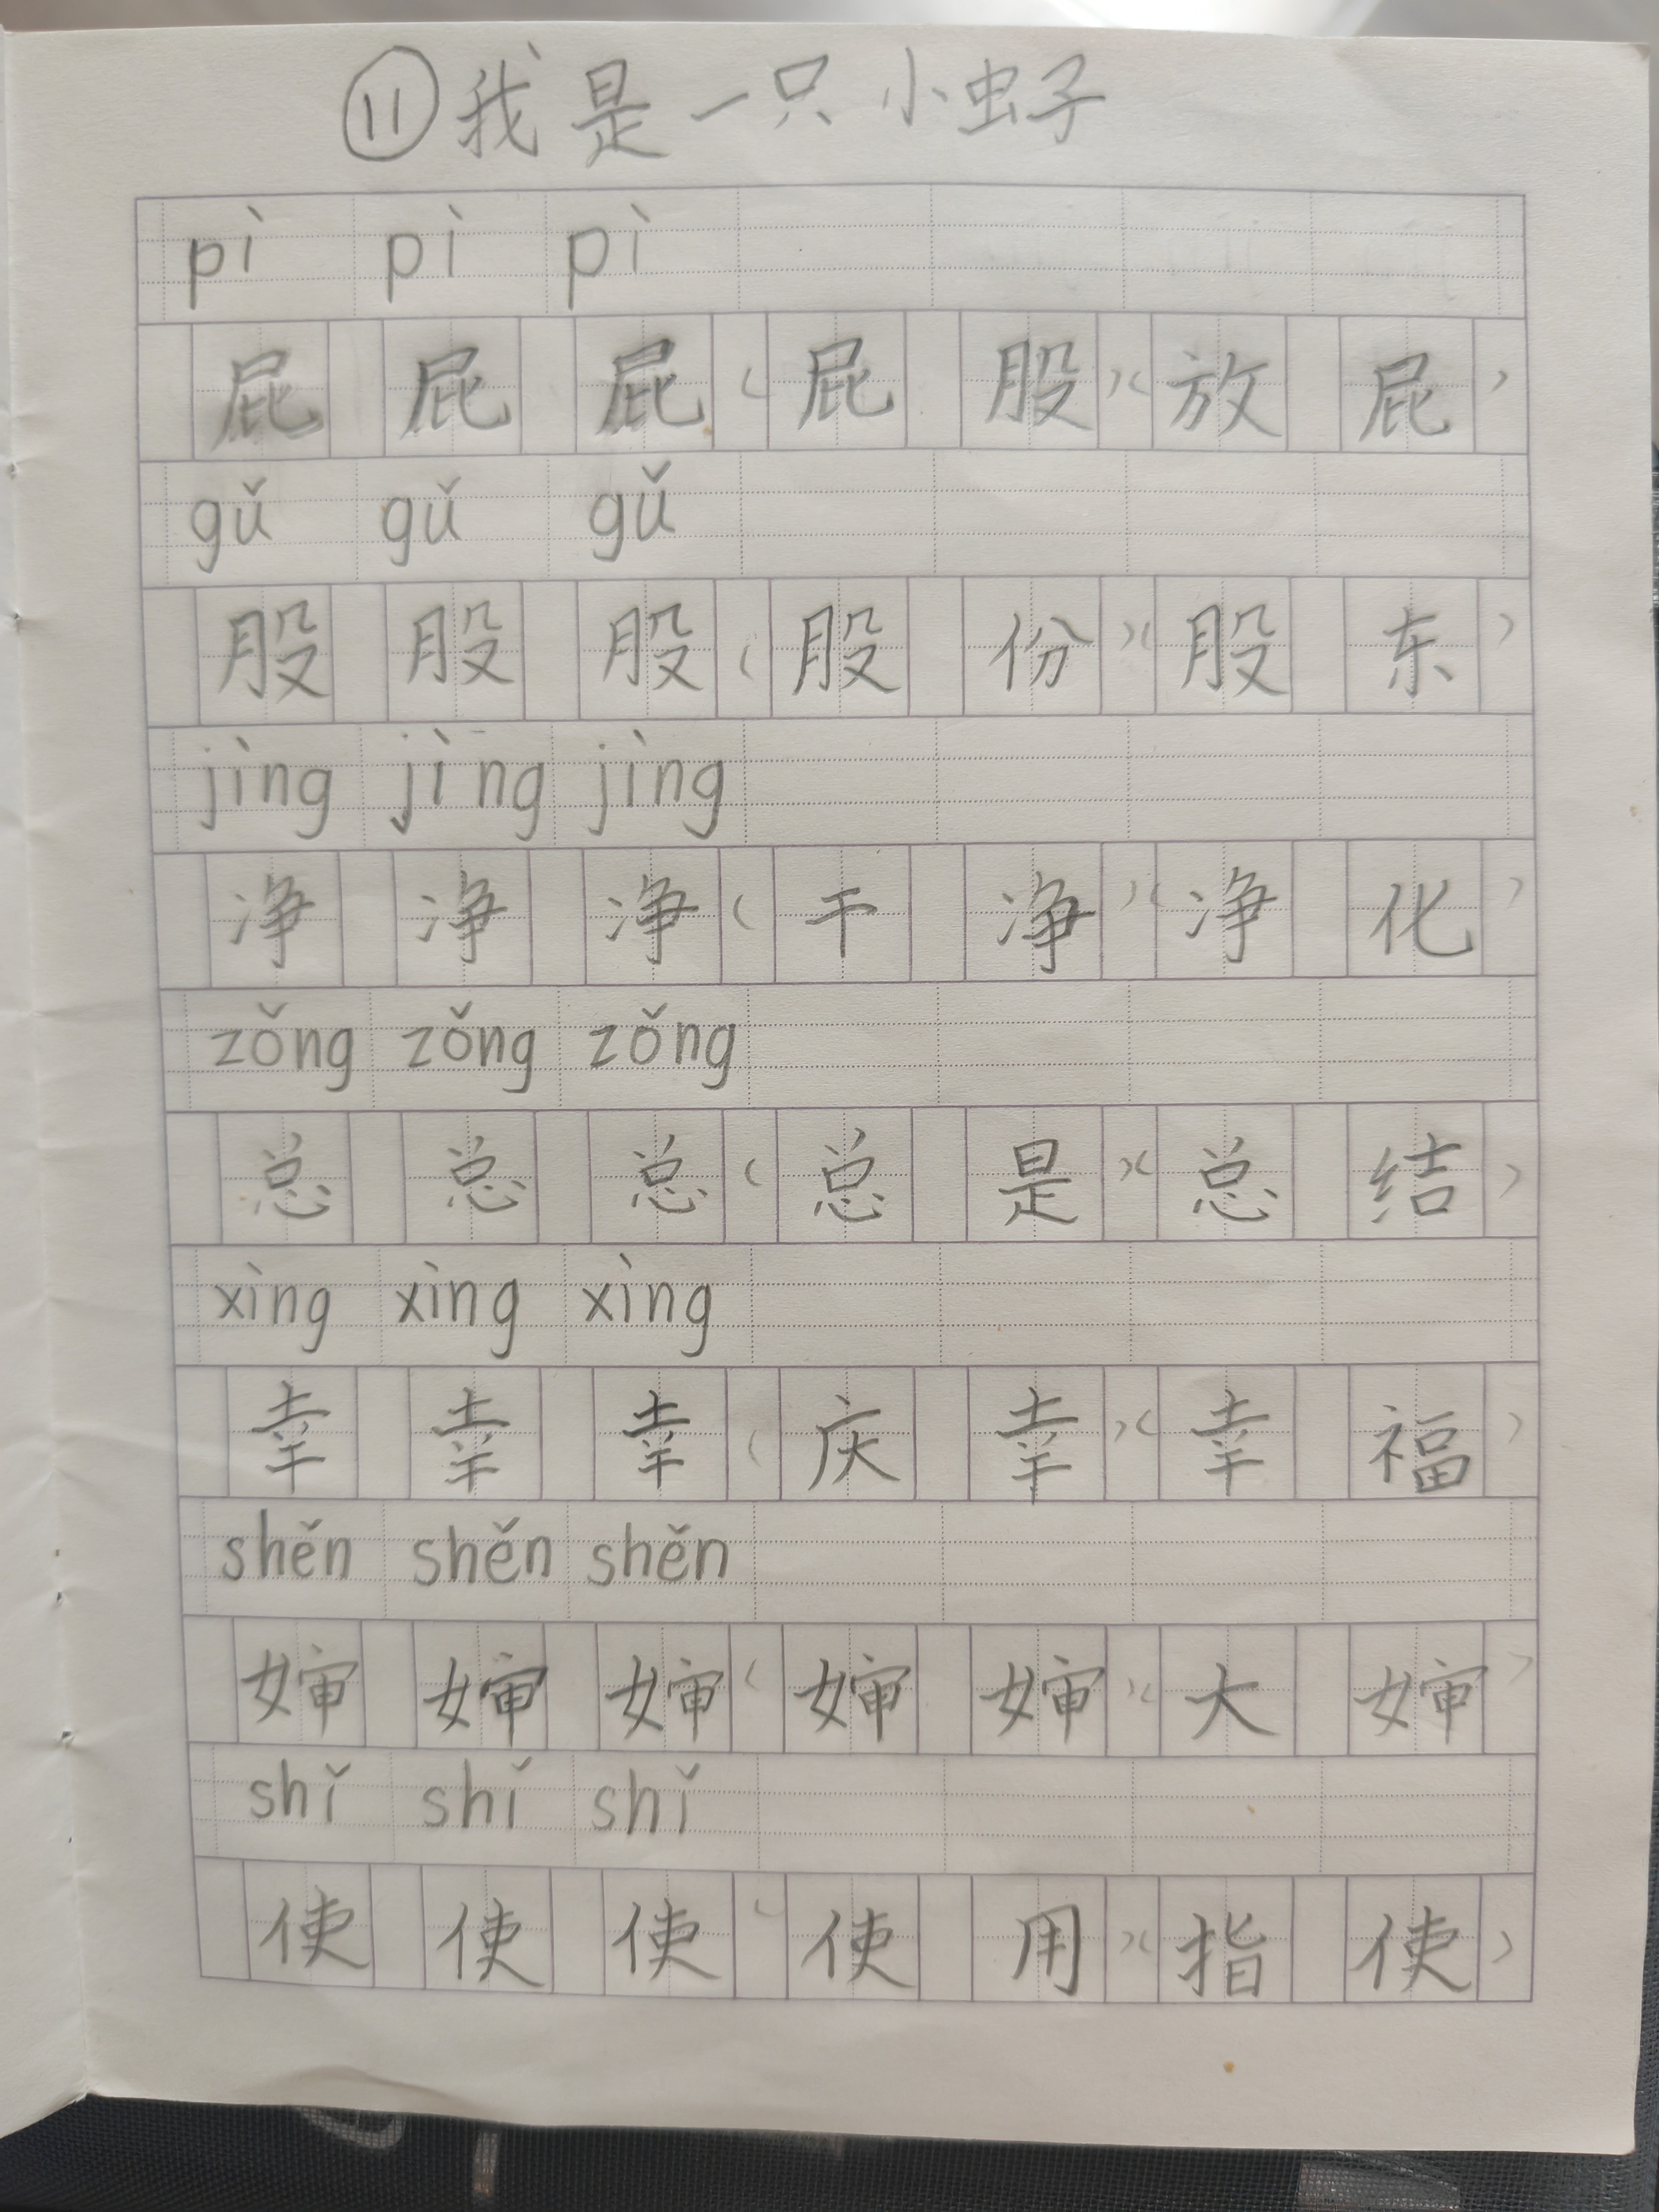 ⑪我是一只小虫子
pì pì pì
屁 屁 屁（屁 股）（放 屁）
gǔ gǔ gǔ
股 股 股（股 份）（股 东）
jìng jìng jìng
净 净 净（干 净）（净 化）
zǒng zǒng zǒng
总 总 总（总 是）（总 结）
xìng xìng xìng
幸 幸 幸（庆 幸）（幸 福）
shěn shěn shěn
婶 婶 婶（婶 婶）（大 婶）
shǐ shǐ shǐ
使 使 使（使 用）（指 使）